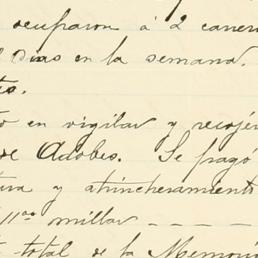 ocuparon á 2 carre
dias en la semana.
to en vigilar y recojer
de Adobes. Se pagó
tura y atrincheramiento
11.00 millar - - - -
total de la Memori